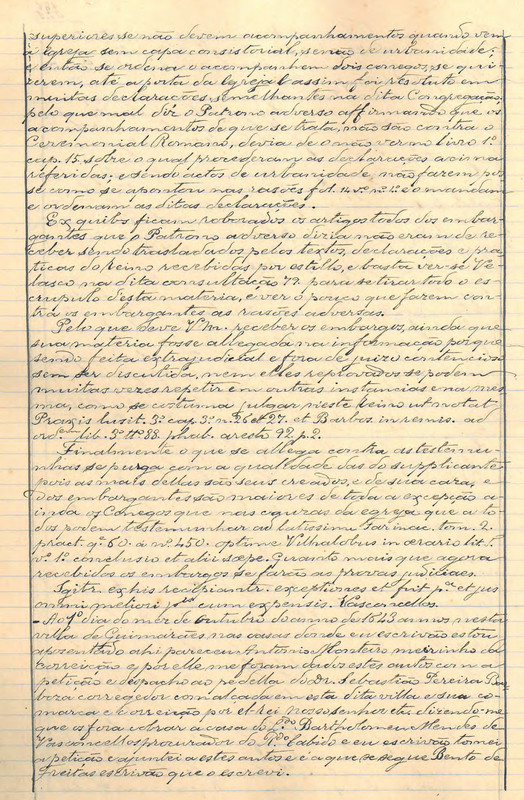 superiores se não devem acompanhamentos quando vem
á Igreja sem capa consistorial, senão de urbanidade;
e então se ordena o acompanhem dois conegos, se qui
zerem, até a porta da Egreja e assim foi resoluto em
muitas declarações, semelhantes na dita Congregação,
pelo que mal diz o Patrono adverso affirmando que os
acompanhamentos de que se trata, não são contra o
Ceremonial Romano, devia de o não ver no livro 1º
cap. 15, sobre o qual procederam as declarações acima
referidas; e sendo actos de urbanidade, não fazem pos
se como se apontou nas rasões fol. 14 vº nº 4º e o mandam
e ordenam as ditas declarações.
Ex quibus ficam roborados os artigos todos dos embar
gantes que o Patrono adverso dizia não eram de re
ceber sendo trasladados pelos textos, declarações e pra
ticas do reino recebidas por estillo, e basta ver-se Ve
lasco na dita consultação 79 para se tirar todo o es
crupulo desta materia, e ver o pouco que fazem con
tra os embargantes as rasões adversas.
Pelo que deve V. M. receber os embargos, ainda que
sua materia fosse allegada na informação porque
sendo feita extrajudicial e fora de juizo contencioso
sem ser discutida, nem elles reprovados se podem
muitas vezes repetir em outras instancias e na mes
ma, como se costuma julgar neste reino ut notat
Praxis lusit. 3ª cap. 3º nº 26 et 27. et Barbos. in remis. ad
ord. lib. 3º ttº 88. phab. aresto 92. p. 2.
Finalmente o que se allega contra as testemu-
nhas se purga com a qualidade das do supplicante
pois as mais dellas são seus creados, e de sua caza, e
dos embargantes são maiores de toda a excepção a-
inda os Conegos que nas cauzas da egreja que a to
dos podem testemunhar ad latissime Farinac. tom. 2.
pract. qº 60. á nº 450. optime Vilhalobus in ærario lit. I.
nº 1º conclusio et alii sæpe. Quanto mais que agora
recebidos os embargos se farão as provas judiciaes.
Igitr. ex his recipiantr. exceptiones et fiat et jus
omni meliori cum expensis. Vasconcellos.
- Ao 1º dia do mez de outubro do anno de 1643 annos nesta
villa de Guimarães nas casas donde eu escrivão estou
aposentado ahi pareceu Antonio Monteiro meirinho da
Correição e por elle me foram dados estes autos com a
petição e despacho ao pé della do Dr. Sebastião Pereira Bar
boza corregedor com alçada em esta dita villa e sua co-
marca e correição por el-rei nosso senhor etª dizendo-me
que os fora cobrar a casa do Ldo Bartholomeu Mendes de
Vasconcellos procurador do Rdo Cabido e eu escrivão tomei
a petição e ajuntei a estes autos e é a que se segue Bento de
Freitas escrivão que o escrevi.